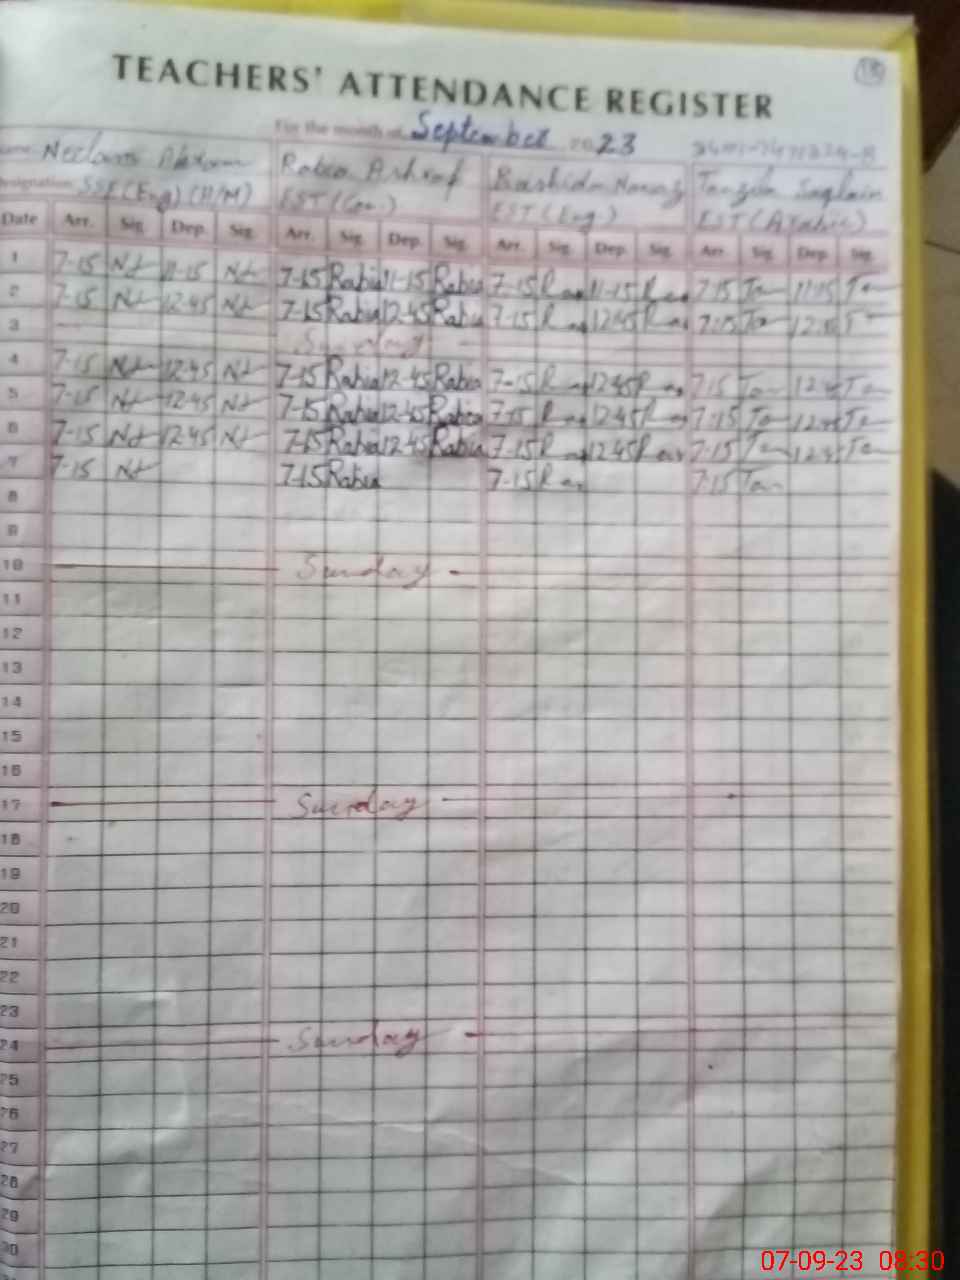 18
TEACHERS' ATTENDANCE REGISTER
For the month of September 2023
Name Neelam Akram Rabia Ashraf Rashida Nawaz Tanzila Saqlain
Designation SSE (Eng) (H/M) EST (Com.) EST (Eng.) EST (Arabic)
Date Arr. Sig. Dep. Sig. Arr. Sig. Dep. Sig. Arr. Sig. Dep. Sig. Arr. Sig. Dep. Sig.
1 7-15 11-15 7-15 Rabia 11-15 Rabia 7-15 11-15 7-15 11-15
2 7-15 12-45 7-15 Rabia 12-45 Rabia 7-15 12-45 7-15 12-45
3 Sunday
4 7-15 12-45 7-15 Rabia 12-45 Rabia 7-15 12-45 7-15 12-45
5 7-15 12-45 7-15 Rabia 12-45 Rabia 7-15 12-45 7-15 12-45
6 7-15 12-45 7-15 Rabia 12-45 Rabia 7-15 12-45 7-15 12-45
7 7-15 7-15 Rabia 7-15 7-15
8
9
10 Sunday
11
12
13
14
15
16
17 Sunday
18
19
20
21
22
23
24 Sunday
25
26
27
28
29
30
07-09-23 08:30